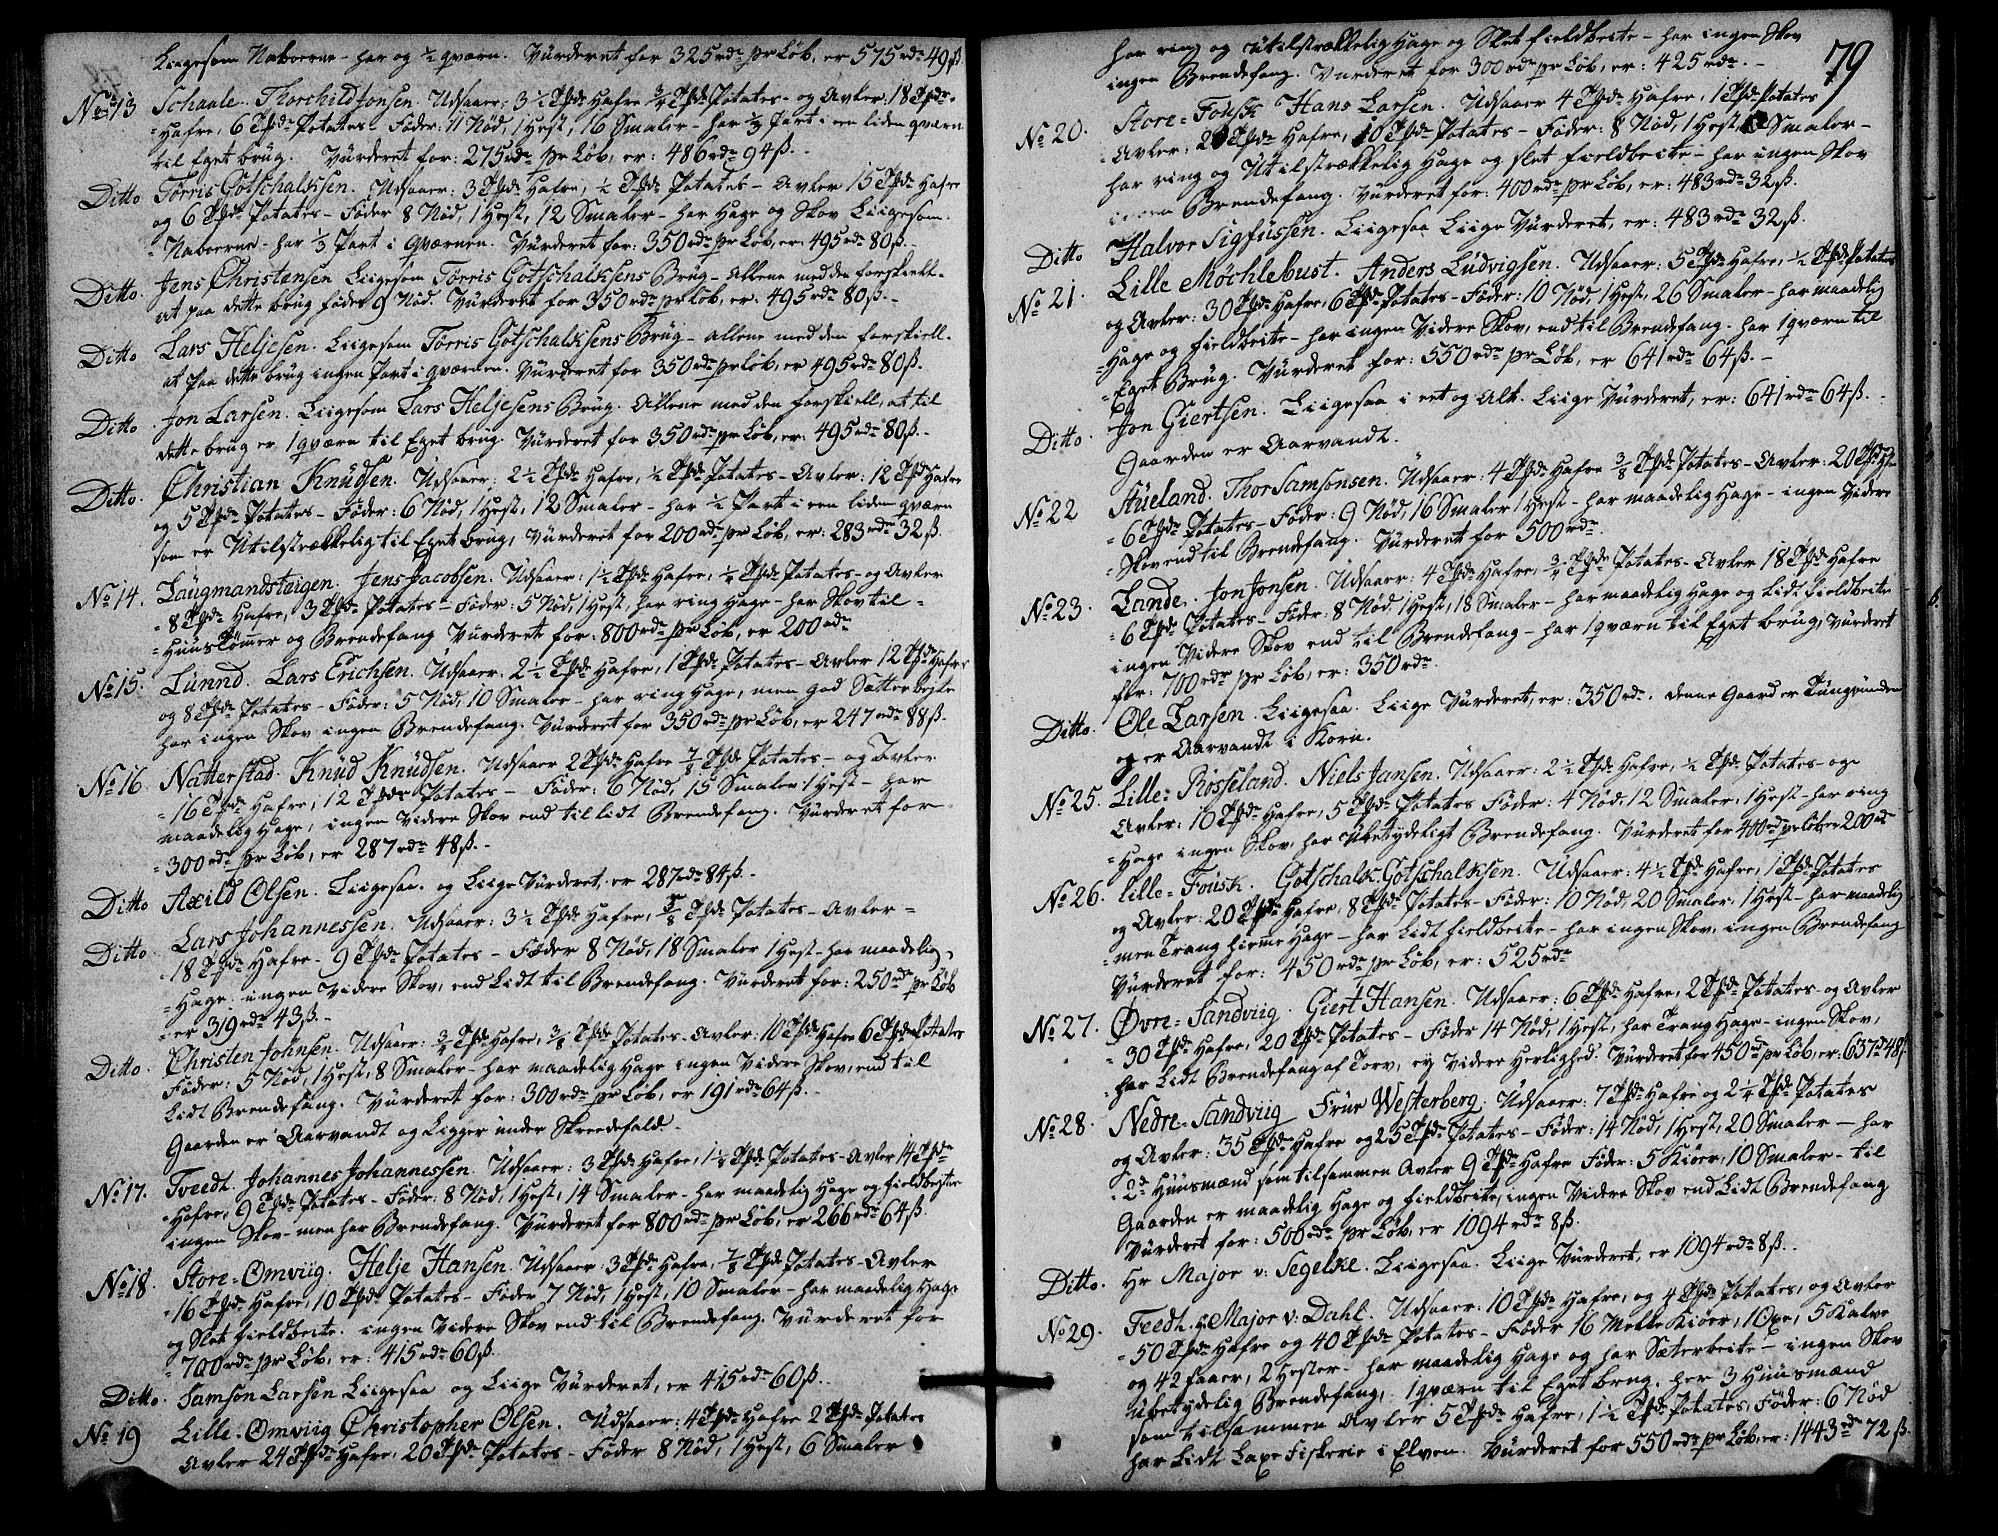 Liigesom Naboerne - har og ½ qværn. Vürderet for 325 rdr pr Løb, er 575 rdr 49 ß.
No 13 Schaale. Thorchild Jonsen. Udsaaer: 3½ Tdr Hafre ¾ Tdr Potates - og Avler: 18 Tdr
Hafre, 6 Tdr Potates - Føder: 11 Nød, 1 Hest, 16 Smaler - har ⅓ Part i een liden qværn
til Eget brüg. Vürderet for: 275 rdr pr Løb, er: 486 rdr 94 ß.
Ditto Tørris Gotschalksen. Udsaaer: 3 Tdr Hafre, ½ Tdr Potates - Avler 15 Tdr Hafre
og 6 Tdr Potates - Føder 8 Nød, 1 Hest, 12 Smaler - har Hage og Skov Liigesom
Naboerne - har ⅓ Part i qværnen. Vürderet for: 350 rdr pr Løb, er: 495 rdr 80 ß.
Ditto. Jens Christensen Liigesom Tørris Gotschalksens Brüg - Allene med den forskiell
at paa dette brüg fødes 9 Nød. Vürderet for 350 rdr pr Løb, er: 495 rdr 80 ß.
Ditto Lars Heljesen. Liigesom Tørris Gotschalksens Brüg - allene med den forskiell.
at paa dette brüg ingen Part i qværnen. Vürderet for 350 rdr pr Løb, er 495 rdr 80 ß.
Ditto. Jon Larsen. Liigesom Lars Heljesens Brüg. Allene med den forskiell, at til
dette brüg er 1 qværn til Eget brüg. Vürderet for 350 rdr pr Løb, er: 495 rdr 80 ß.
Ditto. Christian Knüdsen. Udsaaer: 2½ Tdr Hafre, ½ Tdr Potates - Avler: 12 Tdr Hafre
og 5 Tdr Potates - Føder: 6 Nød, 1 Hest, 12 Smaler - har ½ Part i een liden qværn
som er Utilstrækkelig til Eget brüg, Vürderet for 200 rdr pr Løb, er: 283 rdr 32 ß.
No 14. Laügmandsteigen. Jens Jacobsen. Udsaaer: 1½ Tdr Hafre, ¼ Tdr Potates - og Avler
8 Tdr Hafre, 3 Tdr Potates - Føder: 5 Nød, 1 Hest, har ring Hage - har Skov til
Huustømmer og Brendefang Vürderet for: 800 rdr pr Løb, er 200 rdr
No 15. Lünnd. Lars Erichsen. Udsaaer: 2½ Tdr Hafre, 1 Tdr Potates - Avler 12 Tdr Hafre
og 8 Tdr Potates - Føder: 5 Nød, 10 Smaler - har ring Hage, men god Sætterbeite
har ingen Skov ingen Brendefang. Vürderet for 350 rdr pr Løb, er 247 rdr 88 ß.
No 16 Natterstad. Knüd Knüdsen. Udsaaer 2 Tdr Hafre ⅞ Tdr Potates - og Avler
16 Tdr Hafre, 12 Tdr Potates - Føder: 6 Nød, 15 Smaler 1 Hest - har
maadelig Hage, ingen videre Skov end til lidt Brendefang. Vürderet for
300 rdr pr Løb, er 287 rdr 48 ß.
Ditto Axild Olsen. Liigesaa. og Liige Vürderet, er 287 rdr 84 ß.
Ditto Lars Johannessen. Udsaaer: 3½ Tdr Hafre, ⅝ Tdr Potates - Avler
18 Tdr Hafre - 9 Tdr Potates - Føder 8 Nød, 18 Smaler 1 Hest - har maadelig
Hage ingen Videre Skov, end Lidt til Brendefang. Vürderet for: 250 rdr pr Løb
er 319 rdr 43 ß.
Ditto. Christen Johnsen. Udsaaer: ¾ Tdr Hafre, ⅜ Tdr Potates - Avler: 10 Tdr Hafre 6 Tdr Potates
Føder: 5 Nød, 1 Hest, 8 Smaler - har maadelig Hage ingen Videre Skov, end til
Lidt Brendefang. Vürderet for: 300 rdr pr Løb, er 191 rdr 64 ß.
Gaarden er Aarvandt og Ligger ünder Skreedefald.
No 17. Tveedt. Johannes Johannessen. Udsaaer: 3 Tdr Hafre, 1½ Tdr Potates - Avler 14 Tdr
Hafre, 9 Tdr Potates - Føder: 8 Nød, 1 Hest, 14 Smaler - har maadelig Hage og fieldbeite
ingen Skov - men har Brendefang. Vürderet for 800 rdr pr Løb, er 266 rdr 64 ß.
No 18. Store-Omviig. Helje Hansen. Udsaaer: 3 Tdr Hafre, ⅞ Tdr Potates - Avler
16 Tdr Hafre, 10 Tdr Potates - Føder 7 Nød, 1 Hest, 10 Smaler - har maadelig Hage
og Slet fieldbeite. ingen Videre Skov end til Brendefang. Vürderet for
700 rdr pr Løb, er: 415 rdr 60 ß.
Ditto. Samson Larsen Liigesaa og Liige Vürderet, er 415 rdr 60 ß.
No 19 Lille-Omviig Christopher Olsen. Udsaaer: 4 Tdr Hafre 2 Tdr Potates
Avler 24 Tdr Hafre, 20 Tdr Potates - Føder 8 Nød, 1 Hest, 6 Smaler
79
har ring og utilstrækkelig Hage og Slet fieldbeite - har ingen Skov
ingen Brendefang. Vurderet for 300 rdr pr Løb, er: 425 rdr.
No 20. Store-Fousk Hans Larsen. Udsaaer 4 Tdr Hafre, 1 Tdr Potates
Avler: 20 Tdr Hafre, 10 Tdr Potates - Føder: 8 Nød, 1 Hest, Smaler -
har ring og Utilstrækkelig Hage og slet fieldbeite - har ingen Skov
ingen Brendefang. Vürderet for: 400 rdr pr Løb, er: 483 rdr 32 ß.
Ditto Halvor Sigfüssen. Liigesaa Liige Vürderet, er: 483 rdr 32 ß.
No 21. Lille Møchlebust. Anders Lüdvigsen. Udsaaer: 5 Tdr Hafre, ½ Tdr Potates
og Avler: 30 Tdr Hafre, 6 Tdr Potates - Føder: 10 Nød, 1 Hest, 26 Smaler - har maadelig
Hage og fieldbeite - har ingen Videre Skov, end til Brendefang. har 1 qværn til
Eget Brüg. Vürderet for: 550 rdr pr Løb, er 641 rdr 64 ß.
Ditto. Jon Giertsen. Liigesaa i eet og Alt. Liige Vürderet, er: 641 rdr 64 ß.
Gaarden er Aarvandt.
No 22 Stüeland. Thor Samsonsen. Udsaaer: 4 Tdr Hafre ⅜ Tdr Potates - Avler: 20 Tdr Hafre
6 Tdr Potates - Føder: 9 Nød, 16 Smaler 1 Hest - har maadelig Hage - ingen Videre
Skov end til Brendefang. Vürderet for 500 rdr.
No 23. Lande. Jon Jonsen. Udsaaer: 4 Tdr Hafre, ¾ Tdr Potates - Avler 18 Tdr Hafre
6 Tdr Potates - Føder: 8 Nød, 1 Hest, 18 Smaler - har maadelig Hage og Lidt fieldbeite
ingen Videre Skov end til Brendefang - har 1 qværn til Eget brüg, Vürderet
for: 700 rdr pr Løb, er: 350 rdr.
Ditto. Ole Larsen. Liigesaa. Liige Vürderet, er: 350 rdr. denne Gaard er Tüngvünden
og er Aarvandt i Korn.
No 25. Lille-Røsseland. Niels Jansen. Udsaaer: 2½ Tdr Hafre, ½ Tdr Potates - og
Avler: 10 Tdr Hafre, 5 Tdr Potates Føder: 4 Nød, 12 Smaler, 1 Hest - har ring
Hage ingen Skov, har Ubetydeligt Brendefang. Vürderet for 400 rdr pr Løb er 200 rdr
No 26. Lille-Fousk. Gotschalk Gotschalksen. Udsaaer: 4½ Tdr Hafre, 1 Tdr Potates
og Avler: 20 Tdr Hafre, 8 Tdr Potates - Føder: 10 Nød, 20 Smaler, 1 Hest - har maadelig
men Trang hiemme Hage - har Lidt fieldbeite - har ingen Skov, ingen Brendefang
Vürderet for: 450 rdr pr Løb, er: 525 rdr
No 27. Øvre-Sandviig. Giert Hansen. Udsaaer: 6 Tdr Hafre, 2 Tdr Potates - og Avler
30 Tdr Hafre, 20 Tdr Potates - Føder 14 Nød, 1 Hest, har Trang Hage - ingen Skov,
har Lidt Brendefang af Torv, ey Videre Herlighed. Vürderet for 450 rdr pr Løb, er: 637 rdr 48 ß
No 28. Nedre-Sandviig Früe Westerberg. Udsaaer: 7 Tdr Hafre og 2¼ Tdr Potates
og Avler: 35 Tdr Hafre og 25 Tdr Potates - Føder: 14 Nød, 1 Hest, 20 Smaler - har
2de Huusmænd som tilsammen Avler 9 Tdr Hafre Føder: 5 Kiøer, 10 Smaler - til
Gaarden er maadelig Hage og fieldbeite, ingen Videre Skov end Lidt Brendefang
Vürderet for: 500 rdr pr Løb, er 1094 rdr 8 ß.
Ditto. Hr Major v: Segelke. Liigesaa. Liige Vürderet, er 1094 rdr 8 ß.
No 29. Teedt. Hr Major v: Dahl. Udsaaer: 10 Tdr Hafre, og 4 Tdr Potates, og Avler
50 Tdr Hafre og 40 Tdr Potates - Føder 16 Melke Kiøer, 1 Oxe, 5 Kalve
og 42 faaer, 2 Hester - har maadelig Hage og har Sæterbeite - ingen Skov
ubetydelig Brendefang, 1 qværn til Eget brug. her 3 Huusmænd
som tilsammen Avler 5 Tdr Hafre, 1½ Tdr Potates, Føder: 6 Nød
har Lidt Laxe Fiskerie i Elven. Vürderet for 550 rdr pr Løb, er: 1443 rdr 72 ß.